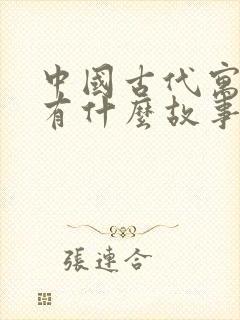 中國古代寓
有什麼故事
張連合